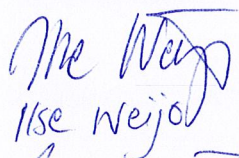 Ilse Weijo
Ilse Weijo